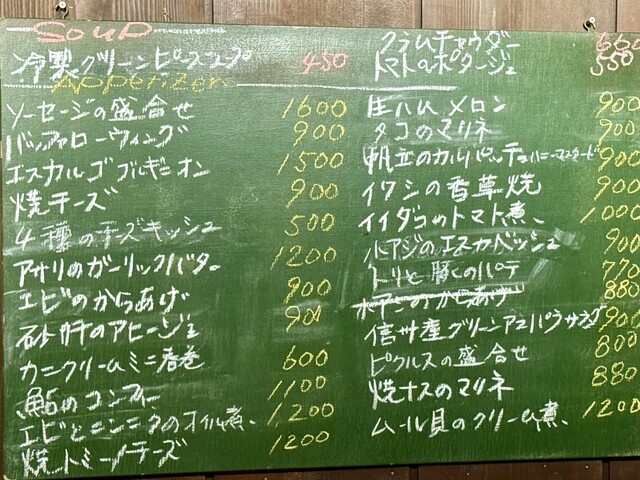 Soup
冷製グリーンピーススープ 450
Appetizer
ソーセージの盛合せ 1600
バッファローウィング 900
エスカルゴブルギニオン 1500
焼チーズ 900
4種のチーズキッシュ 500
アサリのガーリックバター 1200
エビのからあげ 900
砂肝のアヒージョ 900
カニクリームミニ春巻 600
鮎のコンフィー 1100
エビとニンニクのオイル煮 1200
焼トミーノチーズ 1200
クラムチャウダー 660
トマトのポタージュ 550
生ハムメロン 900
タコのマリネ 900
帆立のカルパッチョハニーマスタード 900
イワシの香草焼 900
イイダコのトマト煮 1000
小アジのエスカベッシュ 900
トリと豚のパテ 770
小アジのからあげ 880
信州産グリーンアスパラサラダ 900
ピクルスの盛合せ 800
焼ナスのマリネ 880
ムール貝のクリーム煮 1200